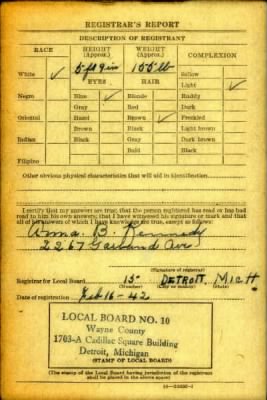 REGISTRAR'S REPORT
DESCRIPTION OF REGISTRANT
RACE HEIGHT (Approx.) WEIGHT (Approx.) COMPLEXION
White ✓ 5 ft 9 in 155 lb Sallow
EYES HAIR Light ✓
Negro Blue ✓ Blonde Ruddy
Gray Red Dark
Oriental Hazel Brown ✓ Freckled
Brown Black Light brown
Indian Black Gray Dark brown
Bald Black
Filipino
Other obvious physical characteristics that will aid in identification
I certify that my answers are true; that the person registered has read or has had
read to him his own answers; that I have witnessed his signature or mark and that
all of his answers of which I have knowledge are true, except as follows:
B. Kennedy
2267 Garland Ave
(Signature of registrar)
Registrar for Local Board 15 DETROIT, MICH
(Number) (City or county) (State)
Date of registration Feb 16-42
LOCAL BOARD NO. 10
Wayne County
1703-A Cadillac Square Building
Detroit, Michigan
(STAMP OF LOCAL BOARD)
(The stamp of the Local Board having jurisdiction of the registrant
shall be placed in the above space)